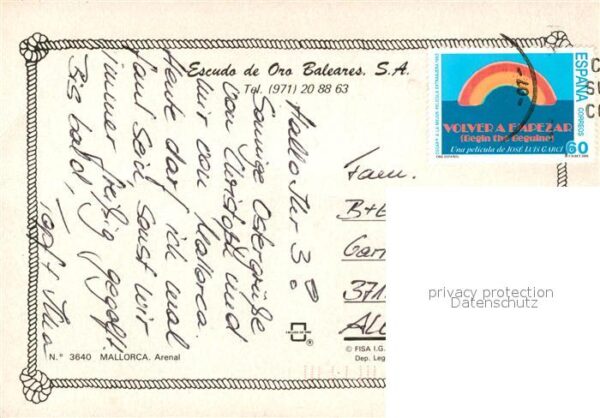 Escudo de Oro Baleares, S.A.
Tel. (971) 20 88 63
Hallo Ihr 3!
Sonnige Ostergrüße
von Christoph und
mir von Mallorca.
Heute darf ich mal
faul sein, sonst wir
immer fleißig gegolft.
Bis bald,
Fam.
B+
Gar
371
N.° 3640 MALLORCA. Arenal
© FISA I.G.
Dep. Leg
ESPAÑA
CORREOS
60
VOLVER A EMPEZAR
(Begin the Beguine)
Una película de JOSÉ LUIS GARCI
CINE ESPAÑOL
privacy protection
Datenschutz